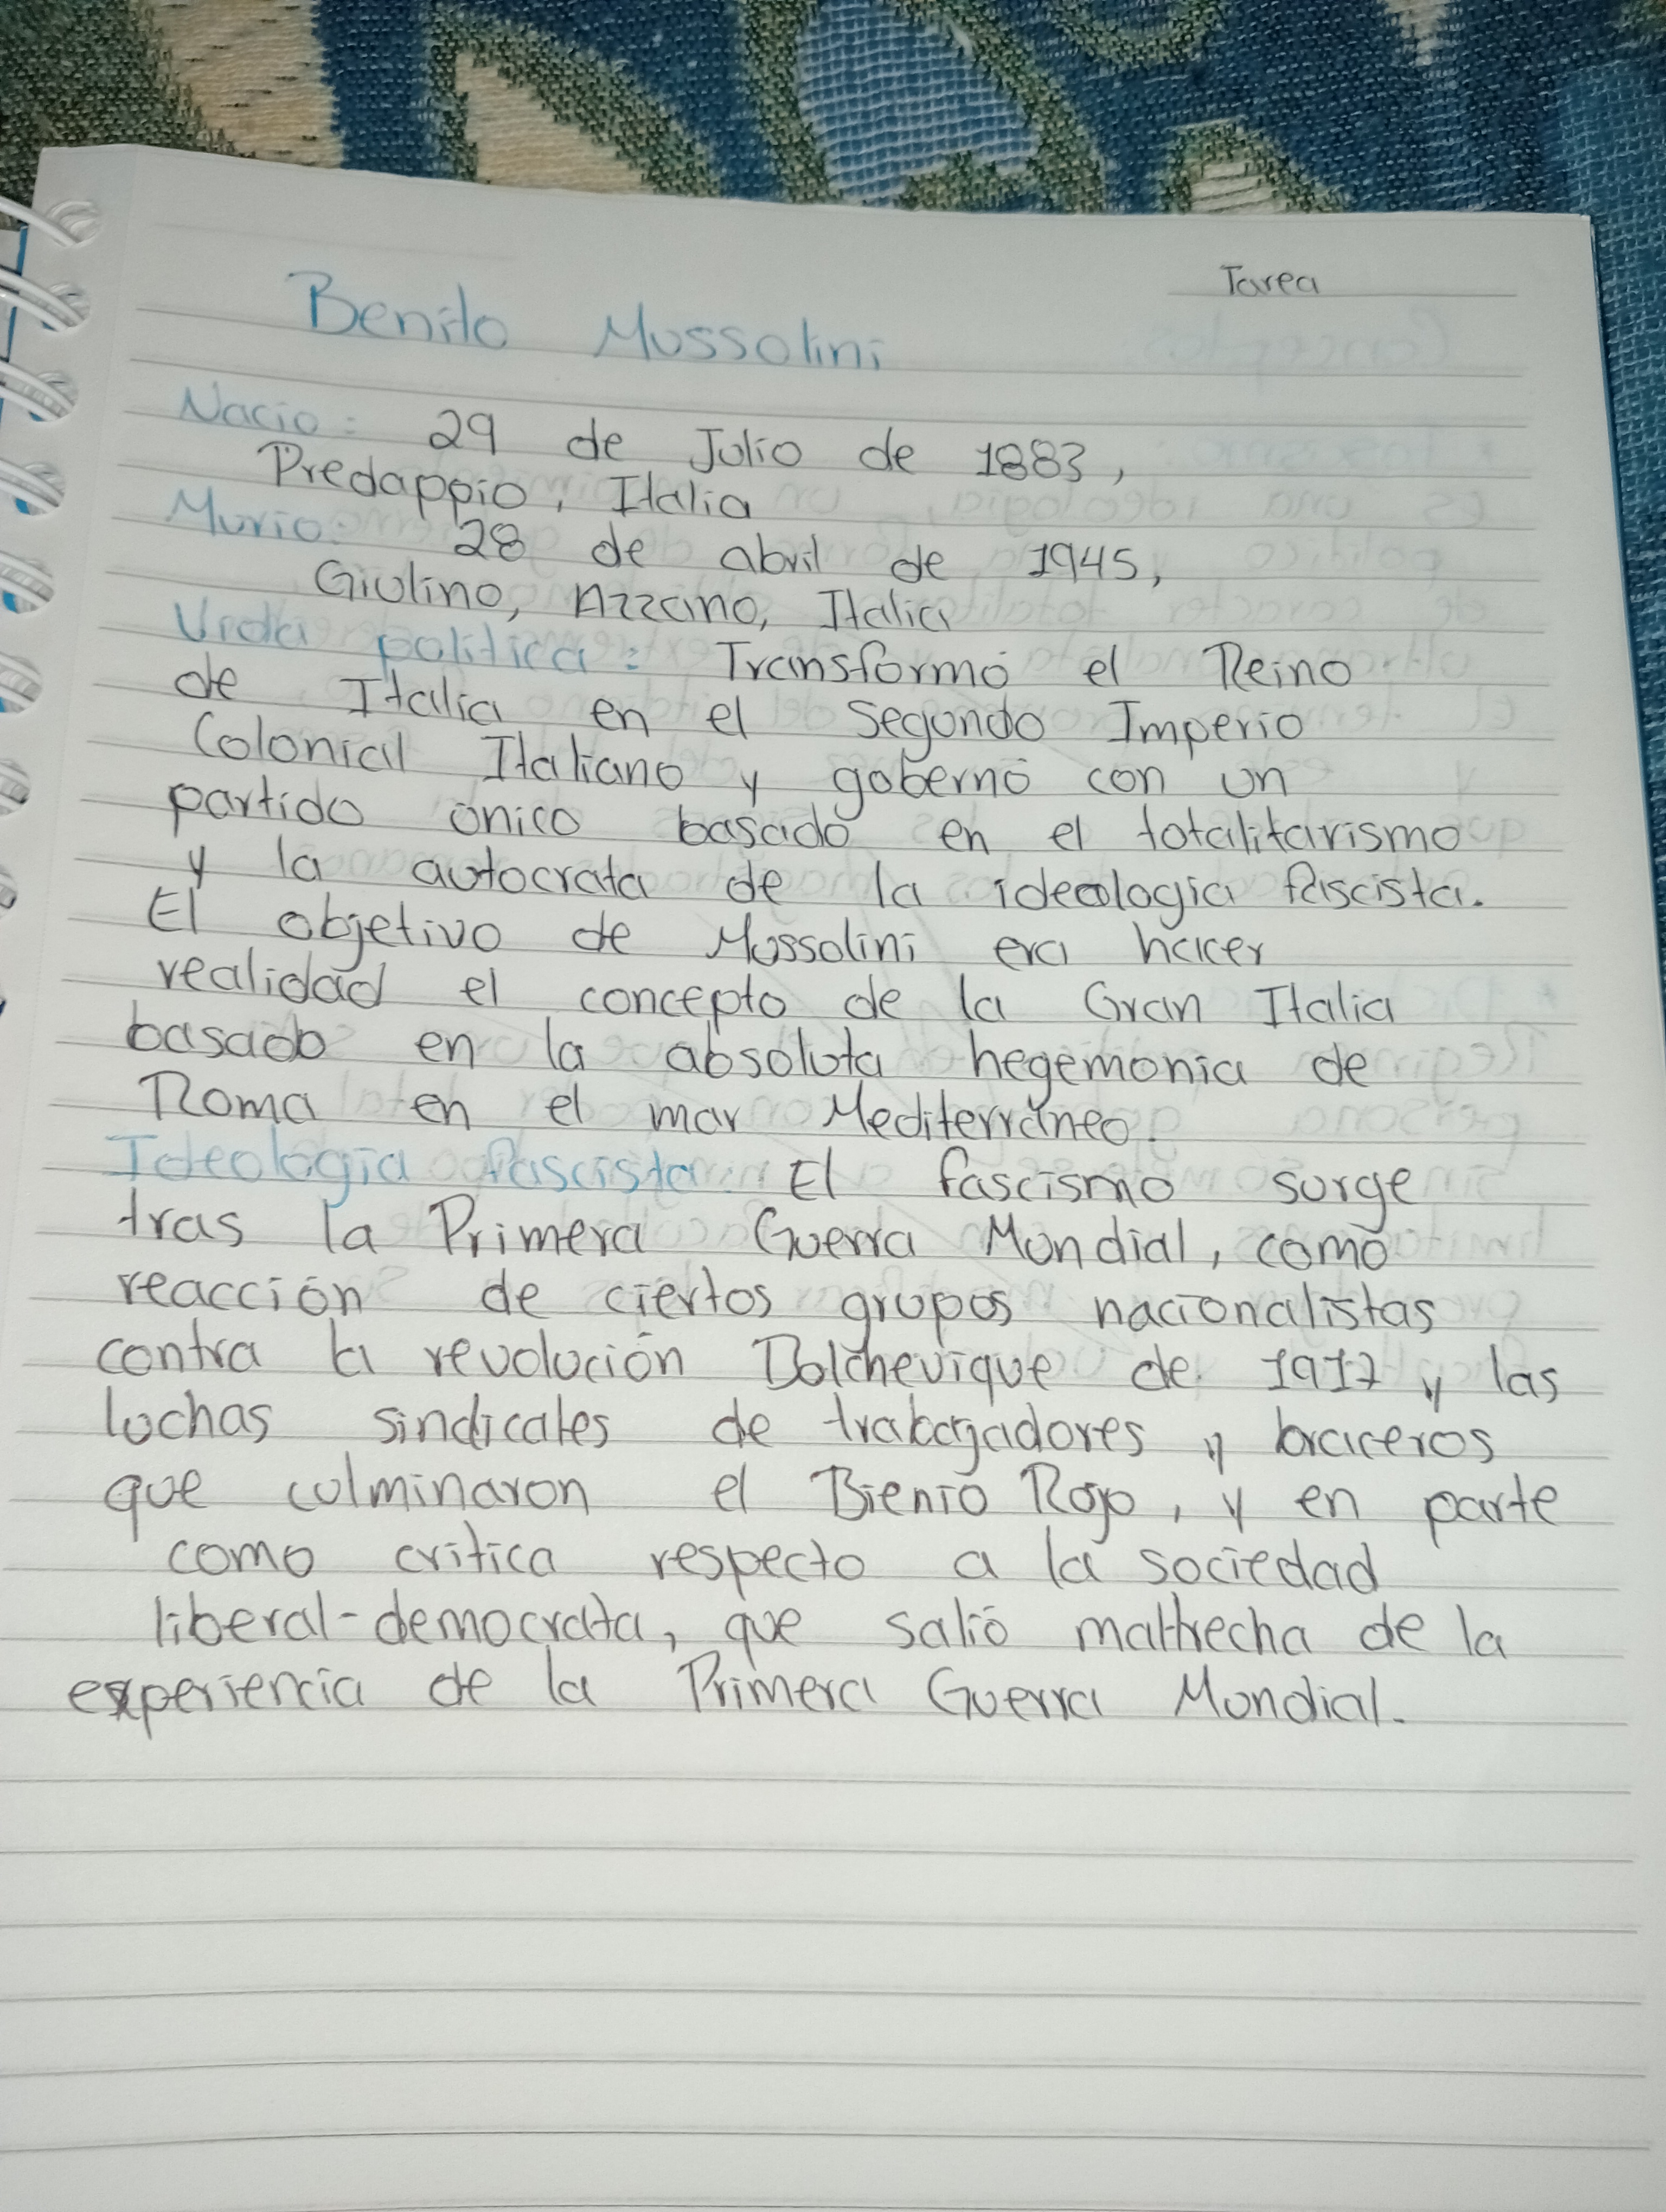 Tarea
Benito Mussolini
Nacio: 29 de Julio de 1883,
Predappio, Italia
Murio: 28 de abril de 1945,
Giulino, Azzano, Italia
Vida politica: Transformó el Reino
de Italia en el Segundo Imperio
Colonial Italiano y gobernó con un
partido único basado en el totalitarismo
y la autocrata de la ideologia fascista.
El objetivo de Mussolini era hacer
realidad el concepto de la Gran Italia
basado en la absoluta hegemonia de
Roma en el mar Mediterráneo.
Ideologia fascista: El fascismo surge
tras la Primera Guerra Mundial, como
reacción de ciertos grupos nacionalistas
contra la revolución Bolchevique de 1917 y las
luchas sindicales de trabajadores y braceros
que culminaron el Bienio Rojo, y en parte
como critica respecto a la sociedad
liberal-democrata, que salió maltrecha de la
experiencia de la Primera Guerra Mundial.